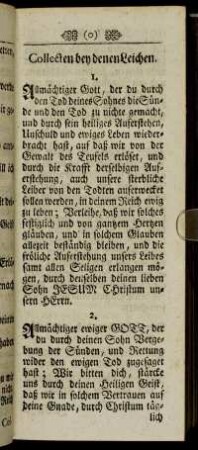 (o)
Collecten bey denen Leichen.
1.
Allmächtiger Gott, der du durch
den Tod deines Sohnes die Sün-
de und den Tod zu nichte gemacht,
und durch sein heiliges Auferstehen,
Unschuld und ewiges Leben wieder-
bracht hast, auf daß wir von der
Gewalt des Teufels erlöset, und
durch die Krafft derselbigen Auf-
erstehung, auch unsere sterbliche
Leiber von den Todten auferwecket
sollen werden, in deinem Reich ewig
zu leben; Verleihe, daß wir solches
festiglich und von gantzem Hertzen
gläuben, und in solchem Glauben
allezeit beständig bleiben, und die
fröliche Auferstehung unsers Leibes
samt allen Seligen erlangen mö-
gen, durch denselben deinen lieben
Sohn JESUM Christum un-
sern HErrn.
2.
Allmächtiger ewiger GOTT, der
du durch deinen Sohn Verge-
bung der Sünden, und Rettung
wider den ewigen Tod zugesaget
hast; Wir bitten dich, stärcke
uns durch deinen Heiligen Geist,
daß wir in solchem Vertrauen auf
deine Gnade, durch Christum täg-
lich